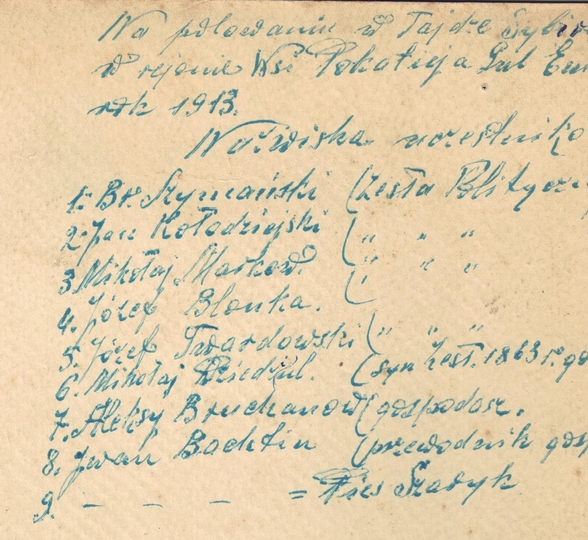 Na polowaniu w Tajdze Sybir
w rejonie Wsi Pokateja Gub
rok 1913.
Nazwiska uczestników
1. Br. Szymański (Zesła Polityczn
2. Jan Kołodziejski ( " " "
3. Mikołaj Markow. ( " " "
4. Józef Blonka. (
5. Józef Twardowski ( " " "
6. Mikołaj (syn Zesł. 1863 r.
7. Aleksy Bruchanow (gospodarz.
8. Jwan Bachtin (przewodnik gosp
9. – – – = Pies Szadyk